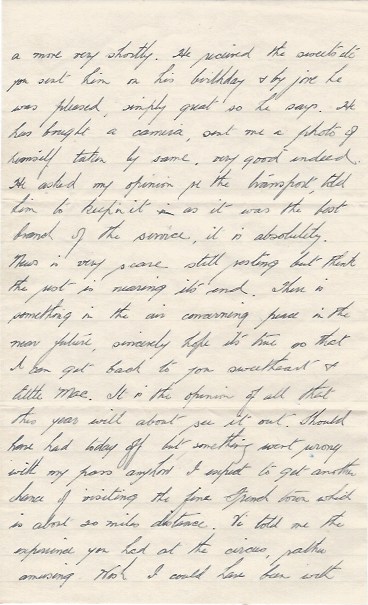 a move very shortly. He received the sweets etc
you sent him on his birthday & by jove he
was pleased, simply great so he says. He
has bought a camera, sent me a photo of
himself taken by same, very good indeed.
He asked my opinion re the transport, told
him to keep in it as it was the best
brand of the service, it is absolutely.
News is very scarce still resting but think
the rest is nearing its end. There is
something in the air concerning peace in the
near future, sincerely hope its true so that
I can get back to you sweetheart &
little Mac. It is the opinion of all that
this year will about see it out. Should
have had today off but something went wrong
with my pass anyhow I expect to get another
chance of visiting the fine French town which
is about 20 miles distance. Vi told me the
experience you had at the circus, rather
amusing Wish I could have been with